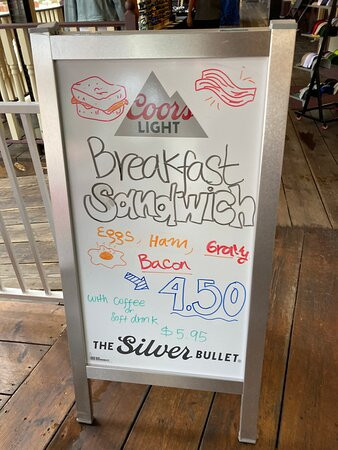 Coors
LIGHT
Breakfast
Sandwich
EGGS, HAM, Gravy
Bacon
4.50
with coffee
or
Soft drink
$5.95
THE Silver BULLET